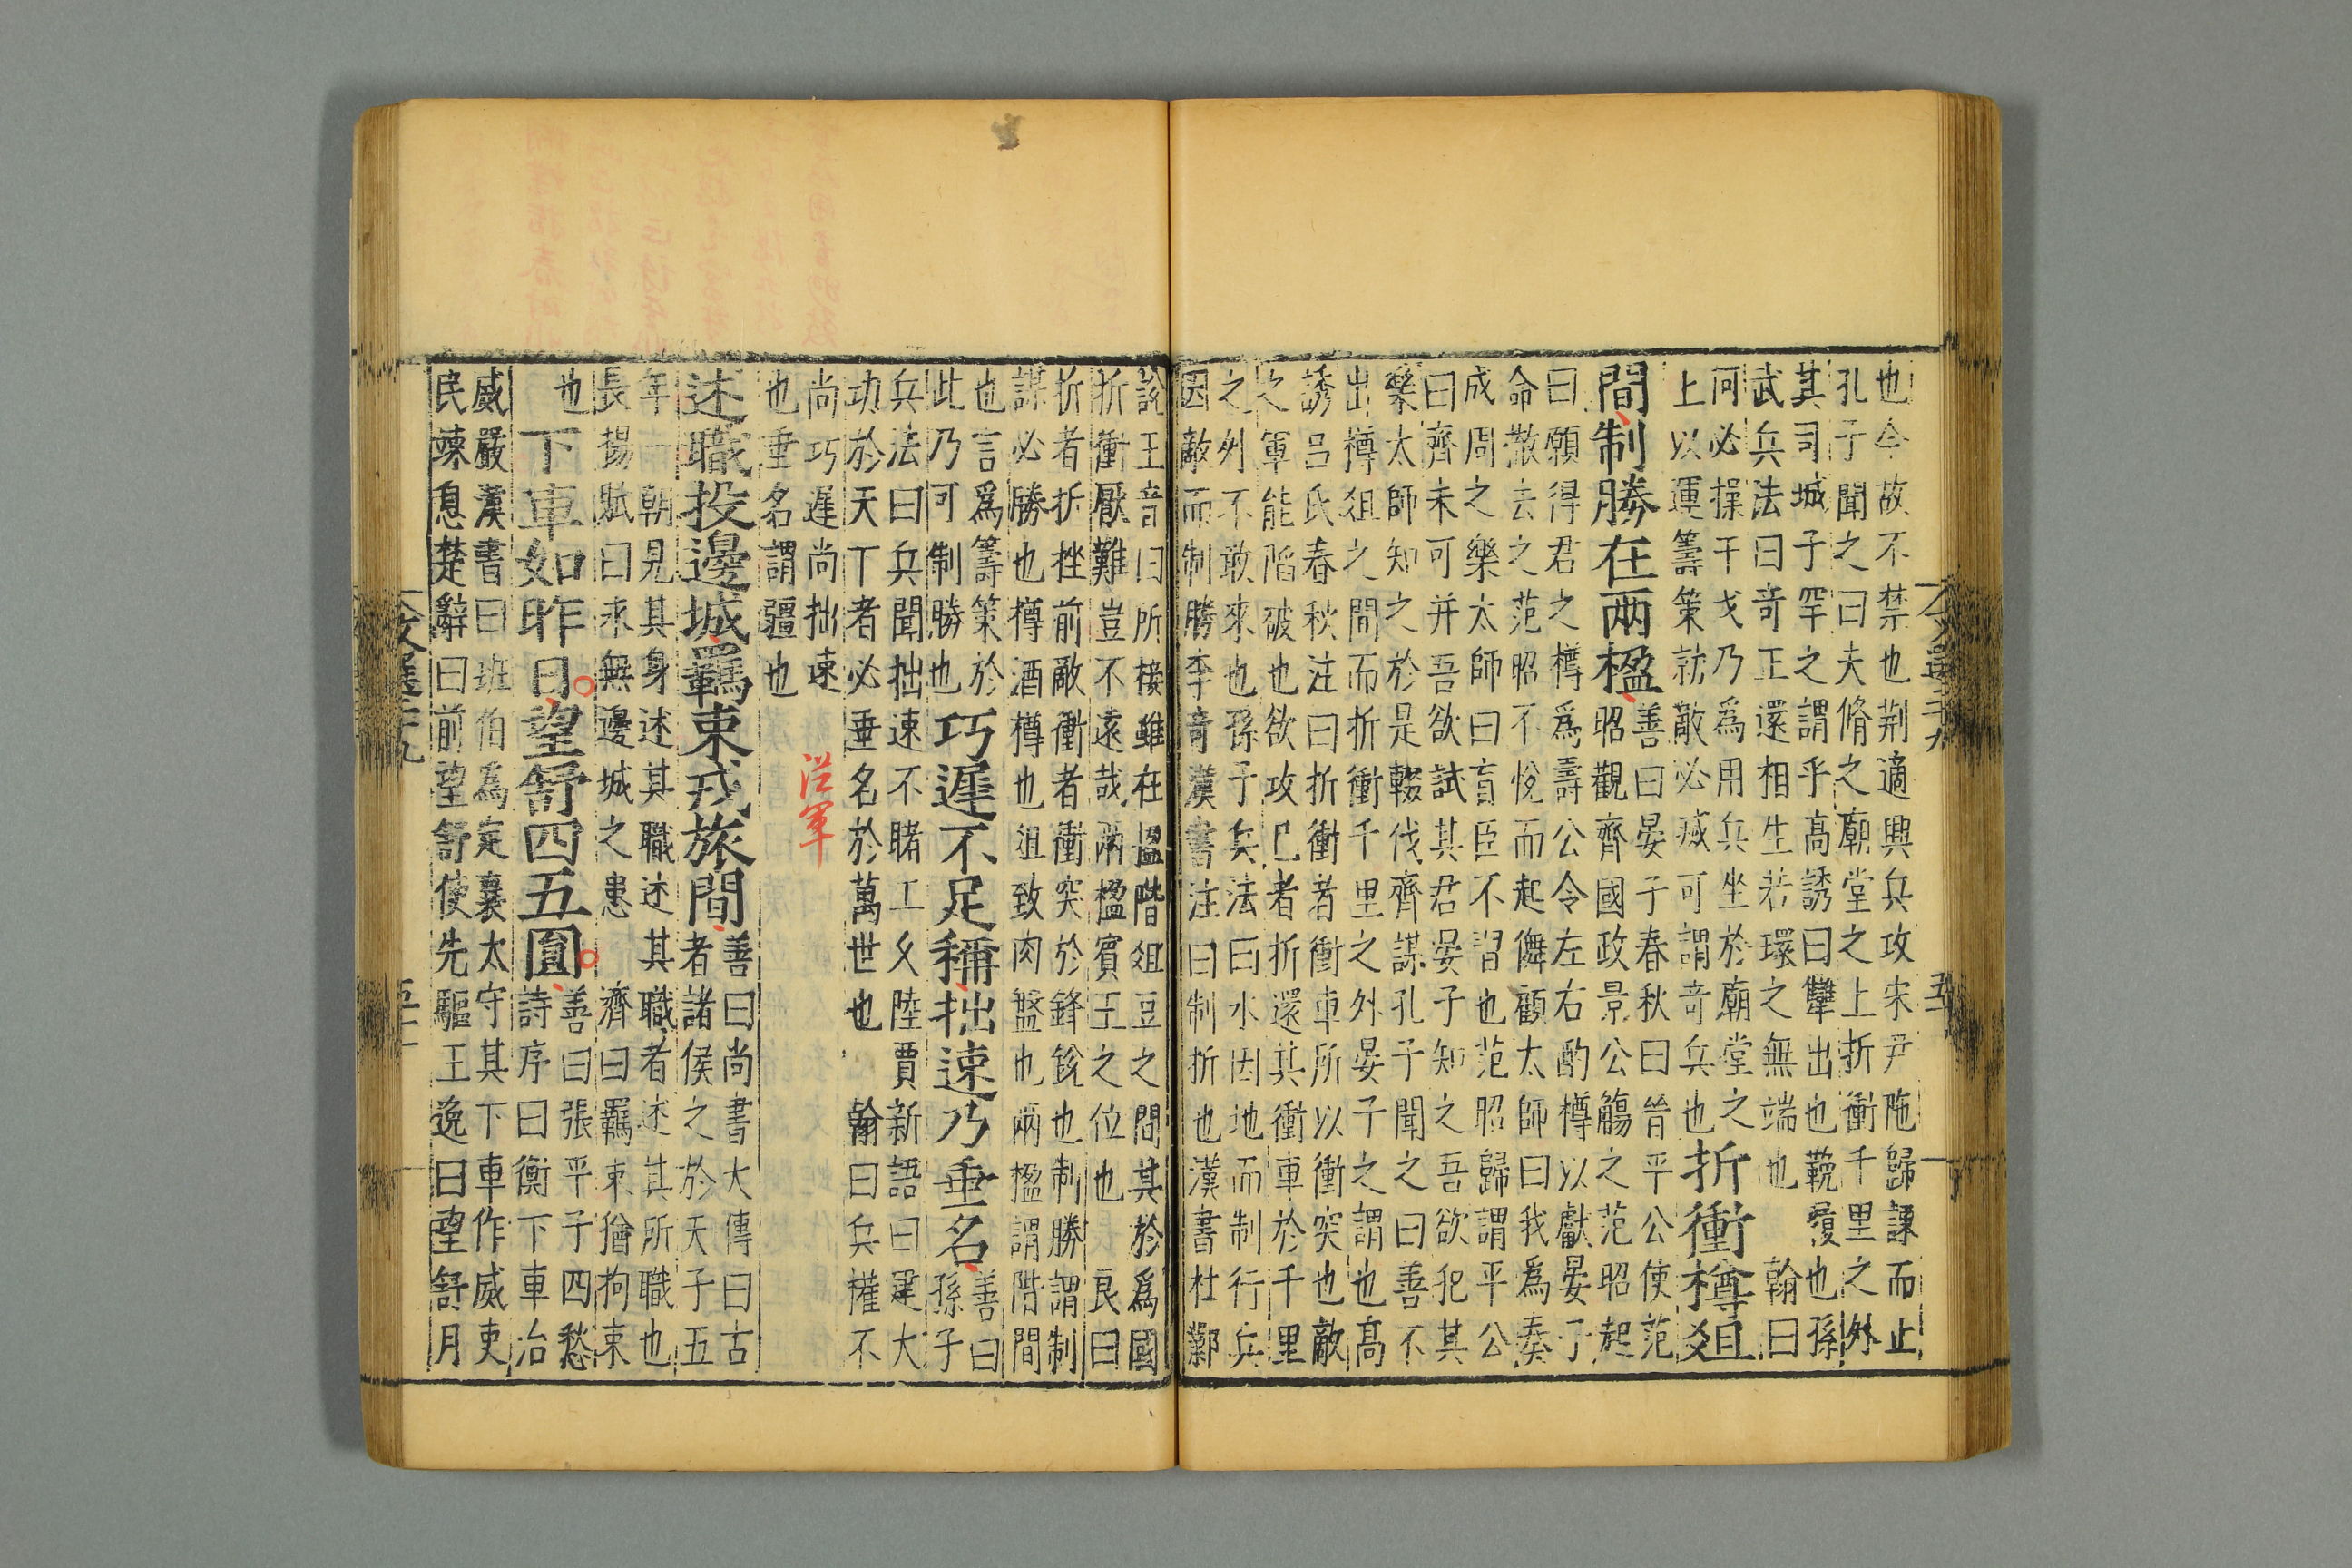 也今故不禁也荆適興兵攻宋尹陁歸諫而止
孔子聞之曰夫脩之廟堂之上折衝千里之外
其司城子罕之謂乎高誘曰犫出也鞔履也孫
武兵法曰竒正還相生若環之無端也 翰曰
何必操干戈乃為用兵坐於廟堂之
上以運籌策就敵必滅可謂竒兵也
折衝樽俎
間制勝在兩楹
善曰晏子春秋曰晉平公使范
昭觀齊國政景公觴之范昭起
曰願得君之樽為壽公令左右酌樽以獻晏子
命散去之范昭不悅而起儛顧太師曰我為奏
成周之樂太師曰盲臣不習也范昭歸謂平公
曰齊未可并吾欲試其君晏子知之吾欲犯其
樂太師知之於是輟伐齊謀孔子聞之曰善不
出樽俎之間而折衝千里之外晏子之謂也高
誘吕氏春秋注曰折衝者衝車所以衝突也敵
之軍能陷破也欲攻巳者折還其衝車於千里
之外不敢來也孫子兵法曰水因地而制行兵
因敵而制勝李竒漢書注曰制折也漢書杜鄴
說王音曰所接雖在楹階俎豆之間其於為國
折衝厭難豈不遠哉兩楹賓主之位也 良曰
折者折挫前敵衝者衝突於鋒銳也制勝謂制
謀必勝也樽酒樽也俎致肉盤也兩楹謂階間
也言為籌策於
此乃可制勝也
巧遲不足稱拙速乃垂名
善曰
孫子
兵法曰兵聞拙速不睹工久陸賈新語曰建大
功於天下者必垂名於萬世也 翰曰兵權不
尚巧遲尚拙速
也垂名謂疆也
從軍
述職投邊城羈束戎旅間
善曰尚書大傳曰古
者諸侯之於天子五
年一朝見其身述其職述其職者述其所職也
長揚賦曰永無邊城之患 濟曰羈束猶拘束
也
下車如昨日望舒四五圓
善曰張平子四愁
詩序曰衡下車治
威嚴漢書曰班伯為定襄太守其下車作威吏
民竦息楚辭曰前望舒使先驅王逸曰望舒月